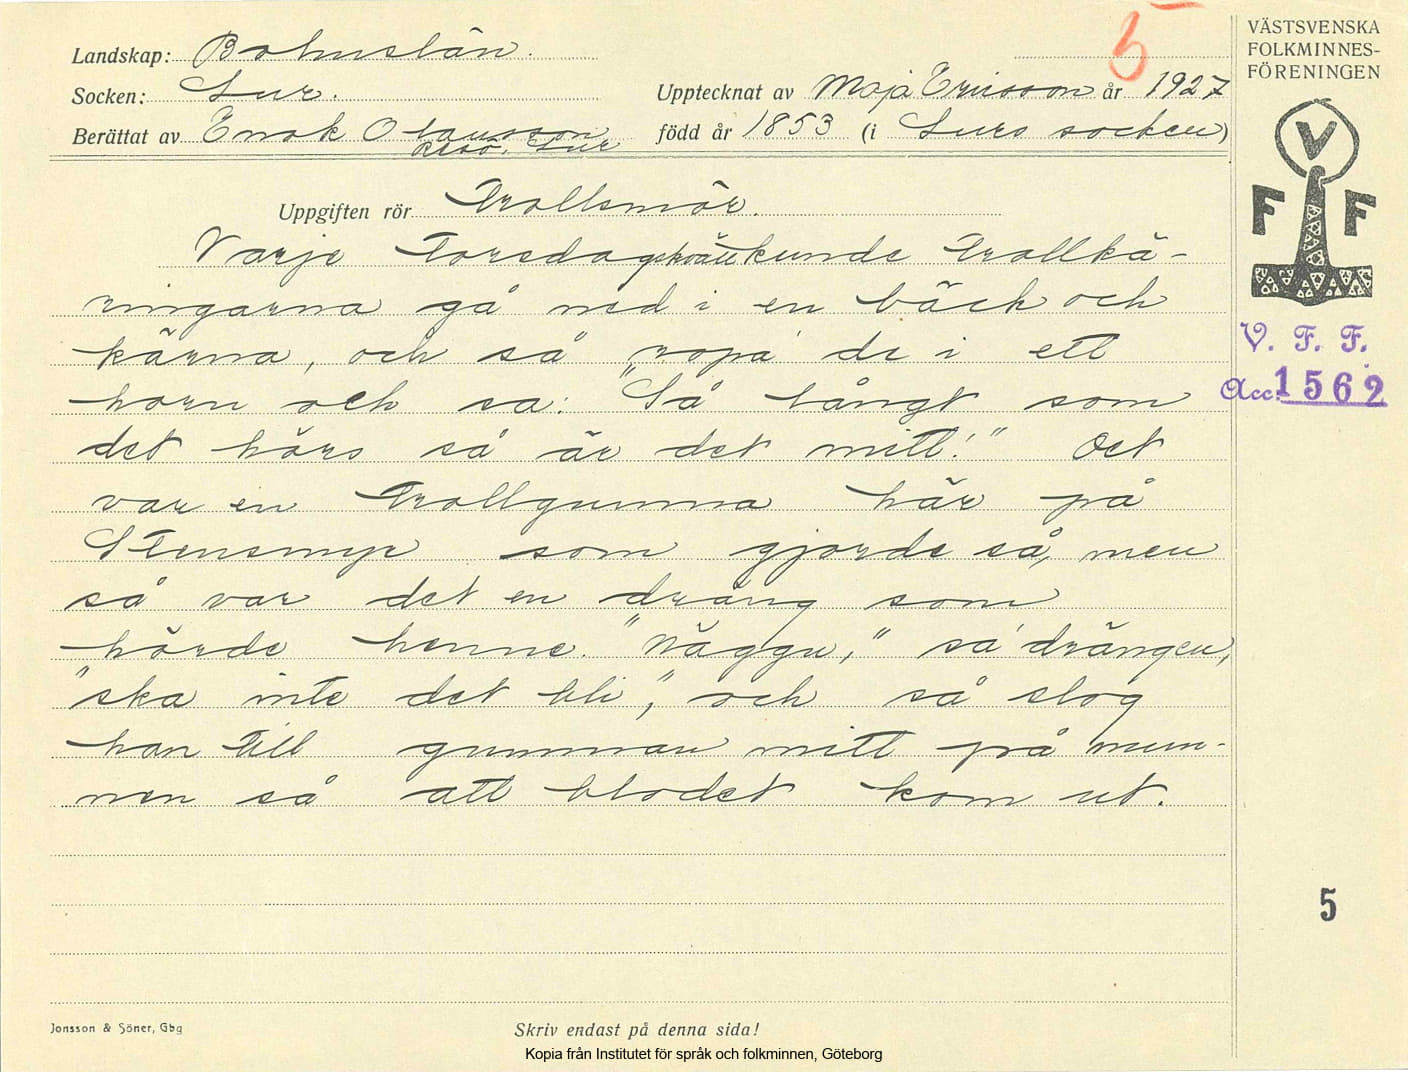 5
VÄSTSVENSKA
FOLKMINNES-
FÖRENINGEN
Landskap: Bohuslän.
Socken: Lur.
Upptecknat av Maja Ericsson år 1927
Berättat av Enok Olausson
Resö, Lur
född år 1853 (i Lurs socken)
Uppgiften rör Trollsmör.
Varje Torsdagskväll kunde Trollkä-
ringarna gå ned i en bäck och
kärna, och så ropa' de i ett
horn och sa: "Så långt som
det hörs så är det mitt!" Det
var en Trollgumma här på
Stensmyr som gjorde så, men
så var det en dräng som
hörde henne. "Näggu," sa' drängen,
"ska inte det bli", och så slog
han till gumman mitt på mun-
nen så att blodet kom ut.
V
F F
V. F. F.
Acc. 1562
5
Jonsson & Söner, Gbg
Skriv endast på denna sida!
Kopia från Institutet för språk och folkminnen, Göteborg